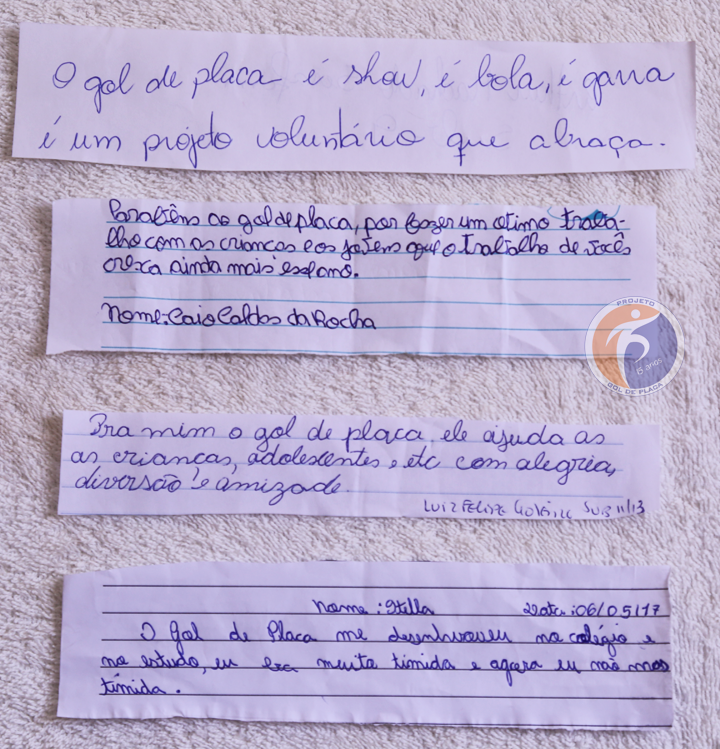 O gol de placa é show, é bola, é garra
é um projeto voluntário que abraça.
Parabêns ao gol de placa, por fazer um otimo traba-
lho com as crianças e os jovens e que o trabalho de vocês
cresca ainda mais esse ano.
Nome: Caio Caldas da Rocha
PROJETO
15 anos
GOL DE PLACA
Pra mim o gol de placa ele ajuda as
as crianças, adolescentes, etc com alegria,
diversão e amizade.
LUIZ FELIPE SUB 11/13
Nome: Stella Data: 06/05/17
O gol de Placa me desenvolveu no colégio e
no estudo, eu era muita timida e agora eu não mas
timida.